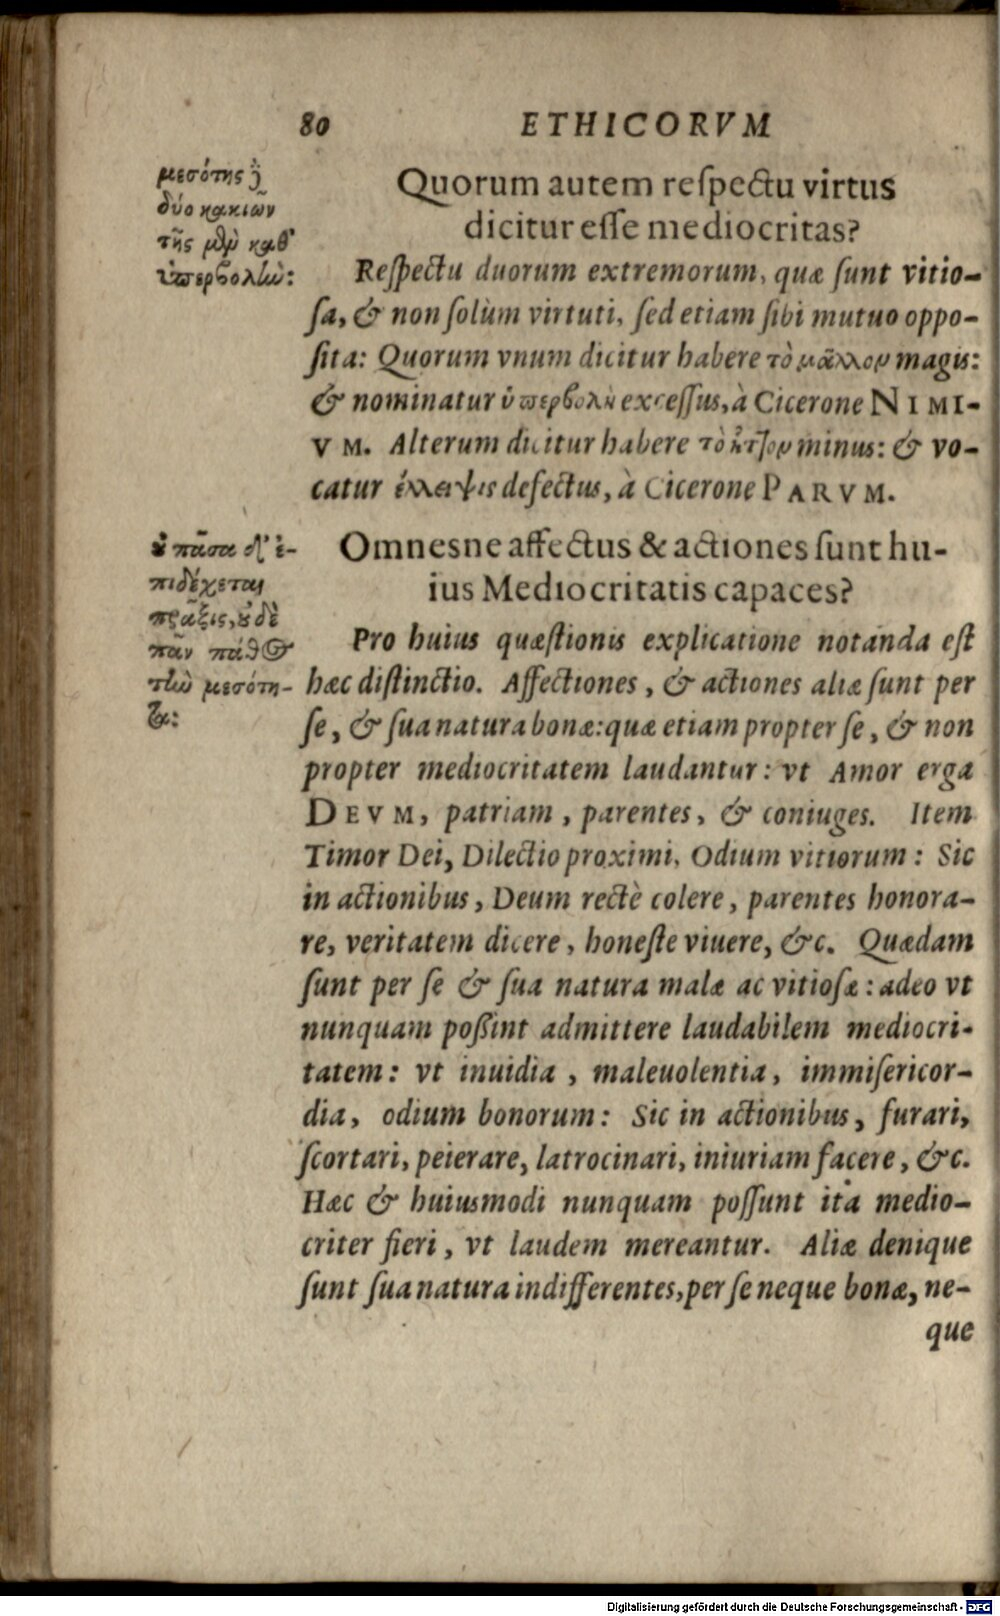 80 ETHICORVM
μεσότης ἢ
δύο κακιῶν
τῆς μὲν καθ'
ὑπερβολὴν:
Quorum autem reſpectu virtus
dicitur eſſe mediocritas?
Reſpectu duorum extremorum, quæ ſunt vitio-
ſa, & non ſolùm virtuti, ſed etiam ſibi mutuo oppo-
ſita: Quorum vnum dicitur habere τὸ μᾶλλον magis:
& nominatur ὑπερβολὴ exceſſus, à Cicerone NIMI-
VM. Alterum dicitur habere τὸ ἧττον minus: & vo-
catur ἔλλειψις defectus, à Cicerone PARVM.
ȣ πᾶσα δ' ἐ-
πιδέχεται
πρᾶξις, ȣδὲ
πᾶν πάθος
τὴν μεσότη-
τα:
Omnesne affectus & actiones ſunt hu-
ius Mediocritatis capaces?
Pro huius quæſtionis explicatione notanda eſt
hæc diſtinctio. Affectiones, & actiones aliæ ſunt per
ſe, & ſua natura bonæ: quæ etiam propter ſe, & non
propter mediocritatem laudantur: vt Amor erga
DEVM, patriam, parentes, & coniuges. Item
Timor Dei, Dilectio proximi, Odium vitiorum: Sic
in actionibus, Deum rectè colere, parentes honora-
re, veritatem dicere, honeſte viuere, &c. Quædam
ſunt per ſe & ſua natura malæ ac vitioſæ: adeo vt
nunquam poßint admittere laudabilem mediocri-
tatem: vt inuidia, maleuolentia, immiſericor-
dia, odium bonorum: Sic in actionibus, furari,
ſcortari, peierare, latrocinari, iniuriam facere, &c.
Hæc & huiusmodi nunquam poſſunt ita medio-
criter fieri, vt laudem mereantur. Aliæ denique
ſunt ſua natura indifferentes, per ſe neque bonæ, ne-
que
Digitalisierung gefördert durch die Deutsche Forschungsgemeinschaft - DFG